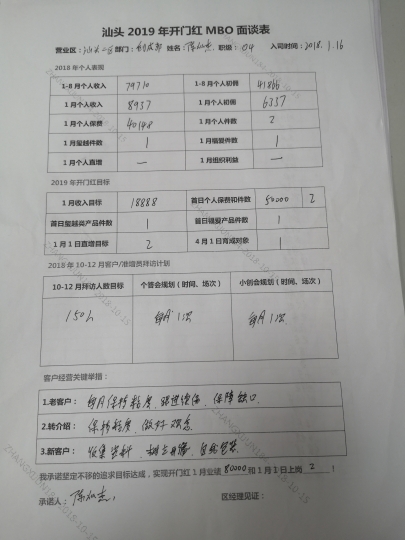 汕头 2019 年开门红 MBO 面谈表
营业区：汕头一区 部门： 姓名： 职级：04 入司时间：2018.1.16
2018 年个人表现
1-8 月个人收入 79710 1-8 月个人初佣 41866
1 月个人收入 8957 1 月个人初佣 6337
1 月个人保费 40148 1 月个人件数 2
1 月星越件数 1 1 月福婴件数 1
1 月个人直增 — 1 月组织利益 —
2019 年开门红目标
1 月收入目标 18888 首日个人保费和件数 50000 2
首日星越类产品件数 1 首日福爱产品件数 1
1 月 1 日直增目标 2 4 月 1 日育成对象 1
2018 年 10-12 月客户/准增员拜访计划
10-12 月拜访人数目标 个答会规划（时间、场次） 小创会规划（时间、场次）
150人 每月1次 每月1次
客户经营关键举措：
1.老客户： 每月保持粘度、 保障缺口
2.转介绍： 保持粘度、做好观念
3.新客户： 收集资料
我承诺坚定不移的追求目标达成，实现开门红 1 月业绩 80000 和 1 月 1 日上岗 2 ！
承诺人： 区经理见证：